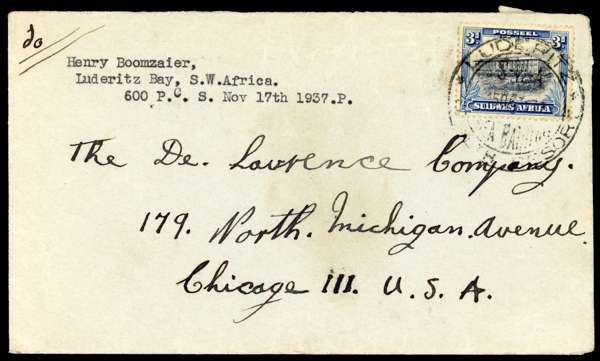 do
Henry Boomzaier,
Luderitz Bay, S.W.Africa.
600 P.C. S. Nov 17th 1937.P.
3d POSSEEL 3d
SUIDWES AFRIKA
LUDERITZ
The De. Lawrence Company.
179. North. Michigan. Avenue.
Chicago Ill. U. S. A.